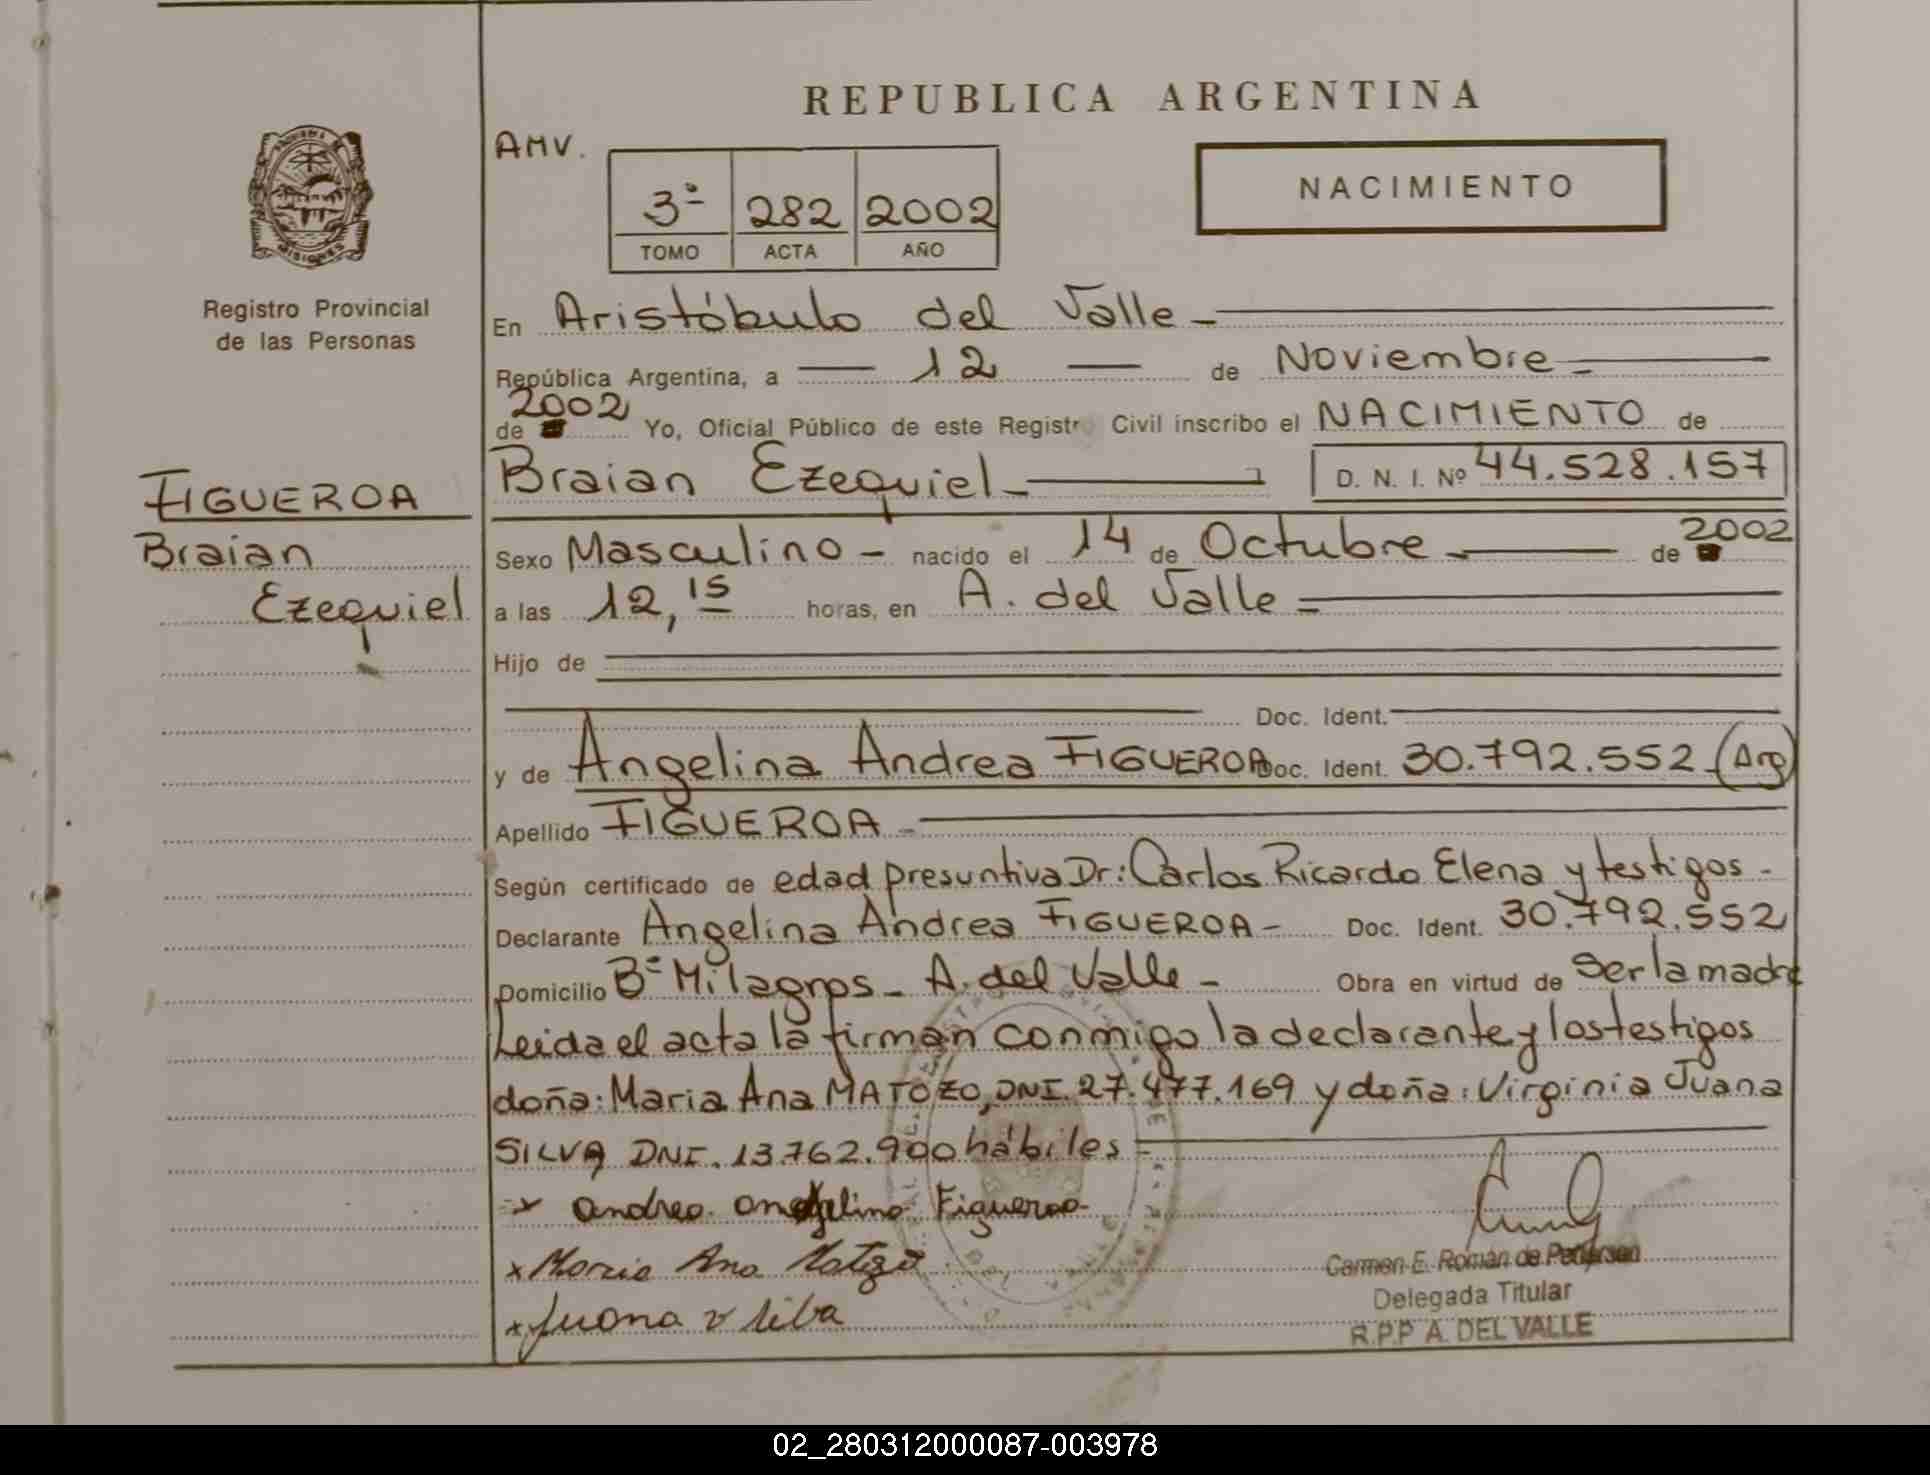 REPUBLICA ARGENTINA
AMV.
NACIMIENTO
3º 282 2002
TOMO ACTA AÑO
MISIONES
Registro Provincial
de las Personas
En Aristóbulo del Valle
República Argentina, a 12 de Noviembre
2002
de Yo, Oficial Público de este Registro Civil inscribo el NACIMIENTO de
FIGUEROA
Braian
Ezequiel
Braian Ezequiel D. N. I. Nº 44.528.157
Sexo Masculino - nacido el 14 de Octubre de 2002
a las 12,15 horas, en A. del Valle
Hijo de
Doc. Ident.
y de Angelina Andrea FIGUEROA Doc. Ident. 30.792.552 (Arg)
Apellido FIGUEROA
Según certificado de edad presuntiva Dr: Carlos Ricardo Elena y testigos -
Declarante Angelina Andrea FIGUEROA - Doc. Ident. 30.792.552
Domicilio Bº Milagros - A. del Valle - Obra en virtud de Ser la madre
Leida el acta la firman conmigo la declarante y los testigos
doña: Maria Ana MATOZO, DNI. 27.477.169 y doña: Virginia Juana
SILVA DNI. 13.762.900 hábiles
x andrea angelina Figueroa
x Maria Ana Matozo
x Juana v silba
Carmen E. Román de Pedersen
Delegada Titular
R.P.P A. DEL VALLE
02_280312000087-003978